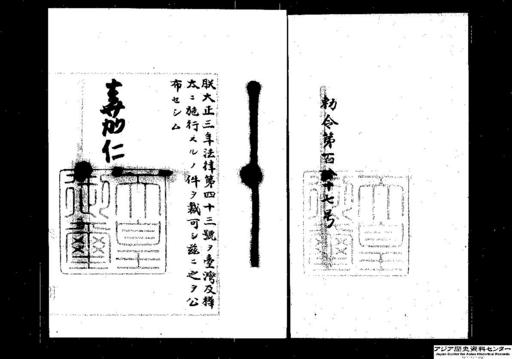 勅令第百十七号
朕大正三年法律第四十三號ヲ臺灣及樺
太ニ施行スルノ件ヲ裁可シ茲ニ之ヲ公
布セシム
嘉仁
天皇
御璽
アジア歴史資料センター
Japan Center for Asian Historical Records